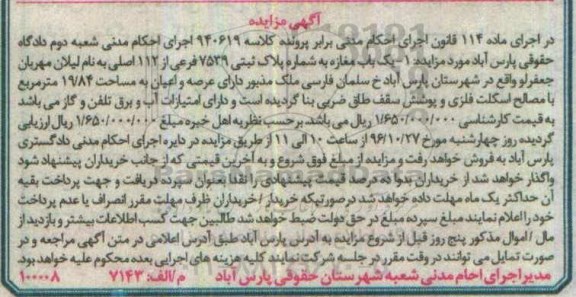 آگهی مزایده
در اجرای ماده ۱۱۴ قانون اجرای احکام مدنی برابر پرونده کلاسه ۹۴۰۶۱۹ اجرای احکام مدنی شعبه دوم دادگاه
حقوقی پارس آباد مورد مزایده: ۱- یک باب مغازه به شماره پلاک ثبتی ۷۵۳۹ فرعی از ۱۱۲ اصلی به نام لیلان مهربان
جعفرلو واقع در شهرستان پارس آباد خ سلمان فارسی ملک مذبور دارای عرصه و اعیان به مساحت ۱۹/۸۴ مترمربع
با مصالح اسکلت فلزی و پوشش سقف طاق ضربی بنا گردیده است و دارای امتیازات آب و برق تلفن و گاز می باشد
به قیمت کارشناسی ۱/۶۵۰/۰۰۰/۰۰۰ ریال می باشد، برحسب نظریه اهل خبره مبلغ ۱/۶۵۰/۰۰۰/۰۰۰ ریال ارزیابی
گردیده روز چهارشنبه مورخ ۹۶/۱۰/۲۷ از ساعت ۱۰ الی ۱۱ از طریق مزایده در دایره اجرای احکام مدنی دادگستری
پارس آباد به فروش خواهد رفت و مزایده از مبلغ فوق شروع و به آخرین قیمتی که از جانب خریداران پیشنهاد شود
واگذار خواهد شد از خریداران بدوا ده درصد قیمت پیشنهادی را نقدا بعنوان سپرده دریافت و جهت پرداخت بقیه
آن حداکثر یک ماه مهلت داده خواهد شد درصورتیکه خریدار / خریداران ظرف مهلت مقرر انصراف یا عدم پرداخت
خود را اعلام نمایند مبلغ سپرده مبلغ در حق دولت ضبط خواهد شد طالبین جهت کسب اطلاعات بیشتر و بازدید از
مال / اموال مذکور پنج روز قبل از شروع مزایده به آدرس پارس آباد طبق آدرس اعلامی در متن آگهی مراجعه و در
صورت تمایل می توانند در وقت مقرر در جلسه شرکت نمایند کلیه هزینه های اجرایی بعده محکوم علیه خواهد بود.
مدیر اجرای احام مدنی شعبه شهرستان حقوقی پارس آباد م/الف: ۷۱۴۳ ۱۰۰۰۰۸